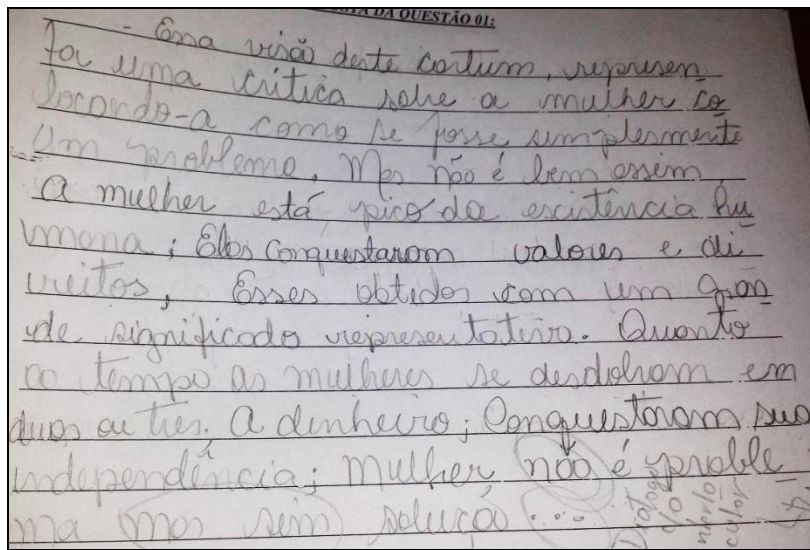 DA QUESTÃO 01:
- Essa visão deste cartum, represen
ta uma crítica sobre a mulher co
locando-a como se fosse simplesmente
um problema. Mas não é bem assim
a mulher está pico da escistência hu
mana; Elas conquestaram valores e di
reitos, Esses obtidos com um gran
de significado representateivo. Quanto
ao tempo as mulheres se desdobram em
duas ou tres. A dinheiro; Conquestaram sua
independência; mulher não é proble
ma mas sim solução...